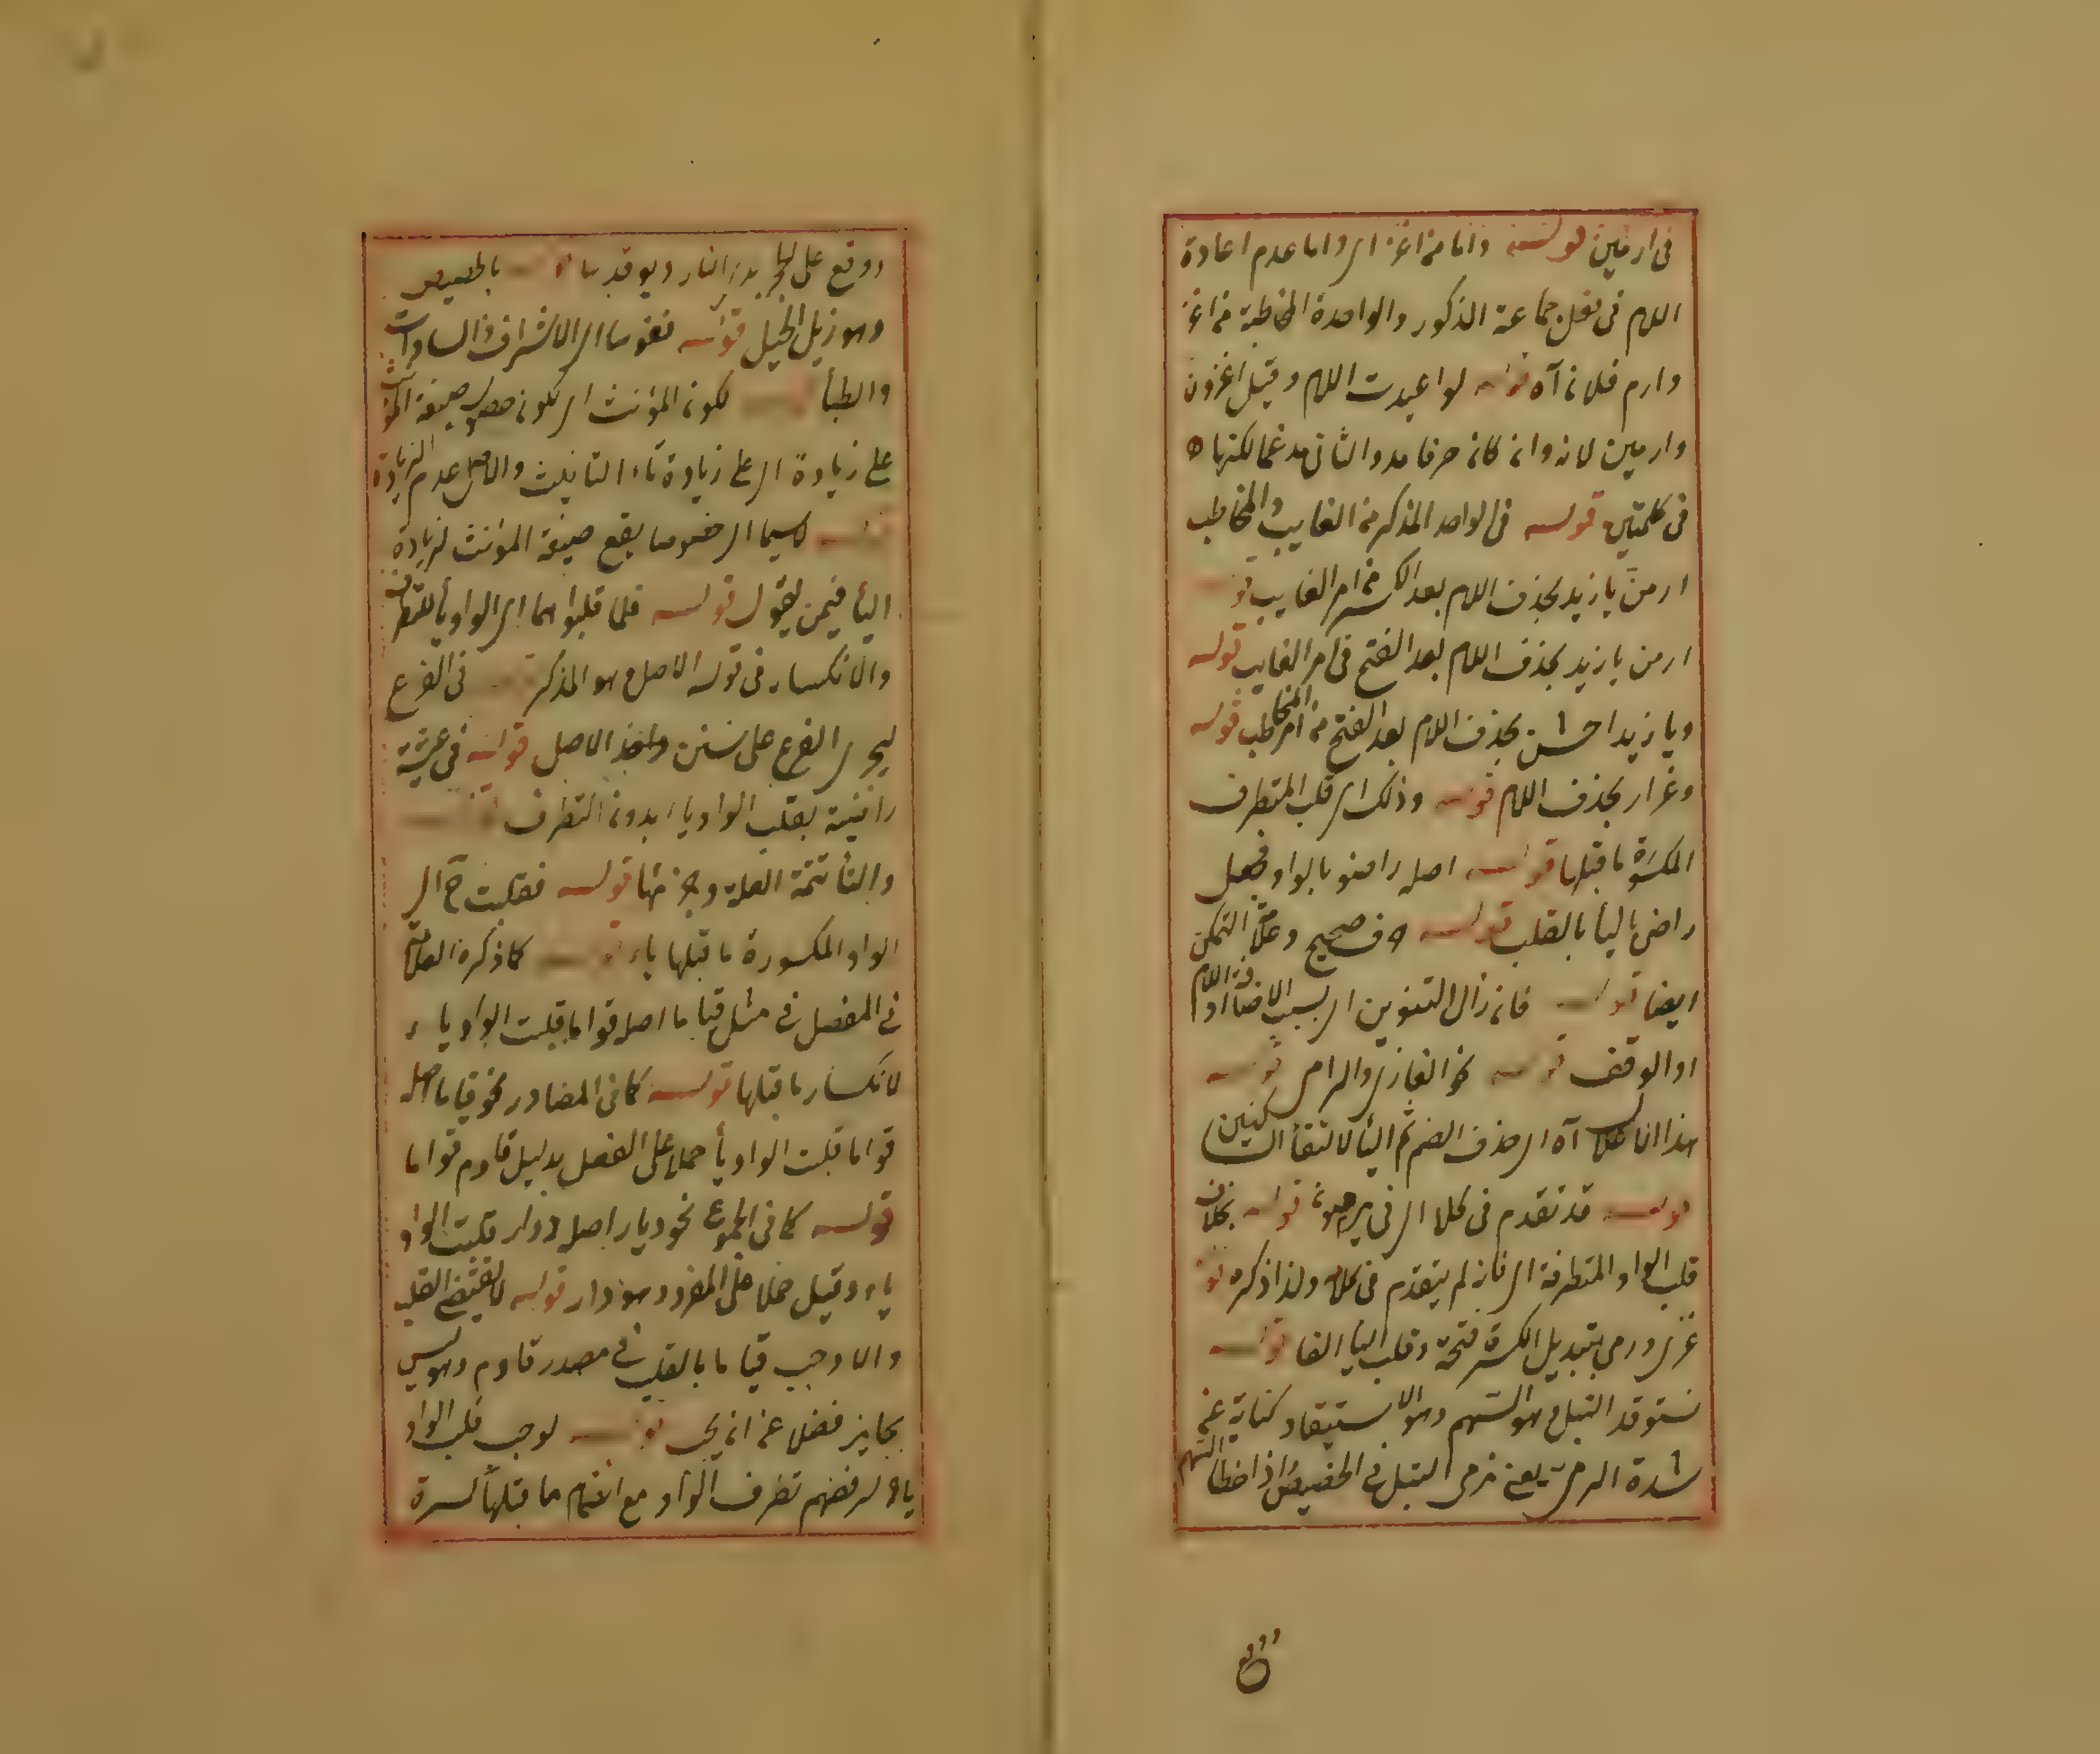 في ارمين قوله واما من اغز اي واما عدم اعادة
اللام في فعل جماعة الذكور والواحدة المخاطبة من اغز
وارم فلان آه قوله لو اعيدت اللام وقيل اغزون
وارمين لانه وان كان حرفا مد والثاني مدغما لكنها
في كلمتين قوله في الواحد المذكر من الغايب والمخاطب
ارمن يا زيد بحذف اللام بعد الكسر من امر الغايب قوله
ارمن يا زيد بحذف اللام بعد الفتح في امر الغايب قوله
ويا زيد اخشن بحذف اللام بعد الفتح من امر المخاطب قوله
بحذف اللام قوله وذلك اي قلب المتطرف
المكسورة ما قبلها قوله اصله راضو بالواو فجعل
راضي باليا بالقلب قوله صحيح وعلامة التمكن
ايضا قوله فان زال التنوين اي بسبب الاضافة او اللام
او الوقف قوله نحو الغازي والرامي قوله
هذا آه اي حذف الضم ثم اليا لالتقا الساكنين
قوله قد تقدم في كلام اي في يرضون قوله بخلاف
قلب الواو المتطرفة اي فانه لم يتقدم في كلامه ولذا ذكره قوله
غزي ورمي بتبديل الكسرة فتحة وقلب اليا الفا قوله
نستوقد النبل هو السهم وهو الاستيقاد كناية عن
شدة الرمي يعني نرمي النبل في الحضيض اذا اخطا السهم
ووقع
ووقع على الحجر النار ويوقد قوله بالحضيض
وهو ذيل الجبل قوله نفوسا اي الاشراف والسادات
والطبا قوله لكون المؤنث اي لكون حصول صيغة المؤنث
على زيادة اي على زيادة تاء التانيث والاصل عدم الزيادة
قوله لا سيما اي خصوصا يقع صيغة المؤنث لزيادة
اليا فيمن يقول قوله فلما قلبوا اي الواو يا للتطرف
والانكسار في قوله الاصل هو المذكر قوله في الفرع
ليجري الفرع على سنن واحد الاصل قوله في
راضية بقلب الواو ياء بدون التطرف قوله
والتا تتمة العلة قوله فقلبت ح اي
الواو المكسورة ما قبلها ياء قوله كما ذكره العلامة
في المفصل في مثل قياما اصله قواما قلبت الواو ياء
لانكسار ما قبلها قوله كما في المصادر نحو قياما اصله
قواما قلبت الواو يا حملا على الفعل بدليل قاوم قواما
قوله كما في الجموع نحو ديار اصله دوار قلبت الواو
ياء وقيل حملا على المفرد وهو دار قوله لا يقتضي القلب
والا وجب قياما بالقلب في مصدر قاوم وهو ليس
بجايز فضلا عن ان يجب قوله لوجب قلب الواو
ياء لرفضهم تطرف الواو مع انضمام ما قبلها كسرة